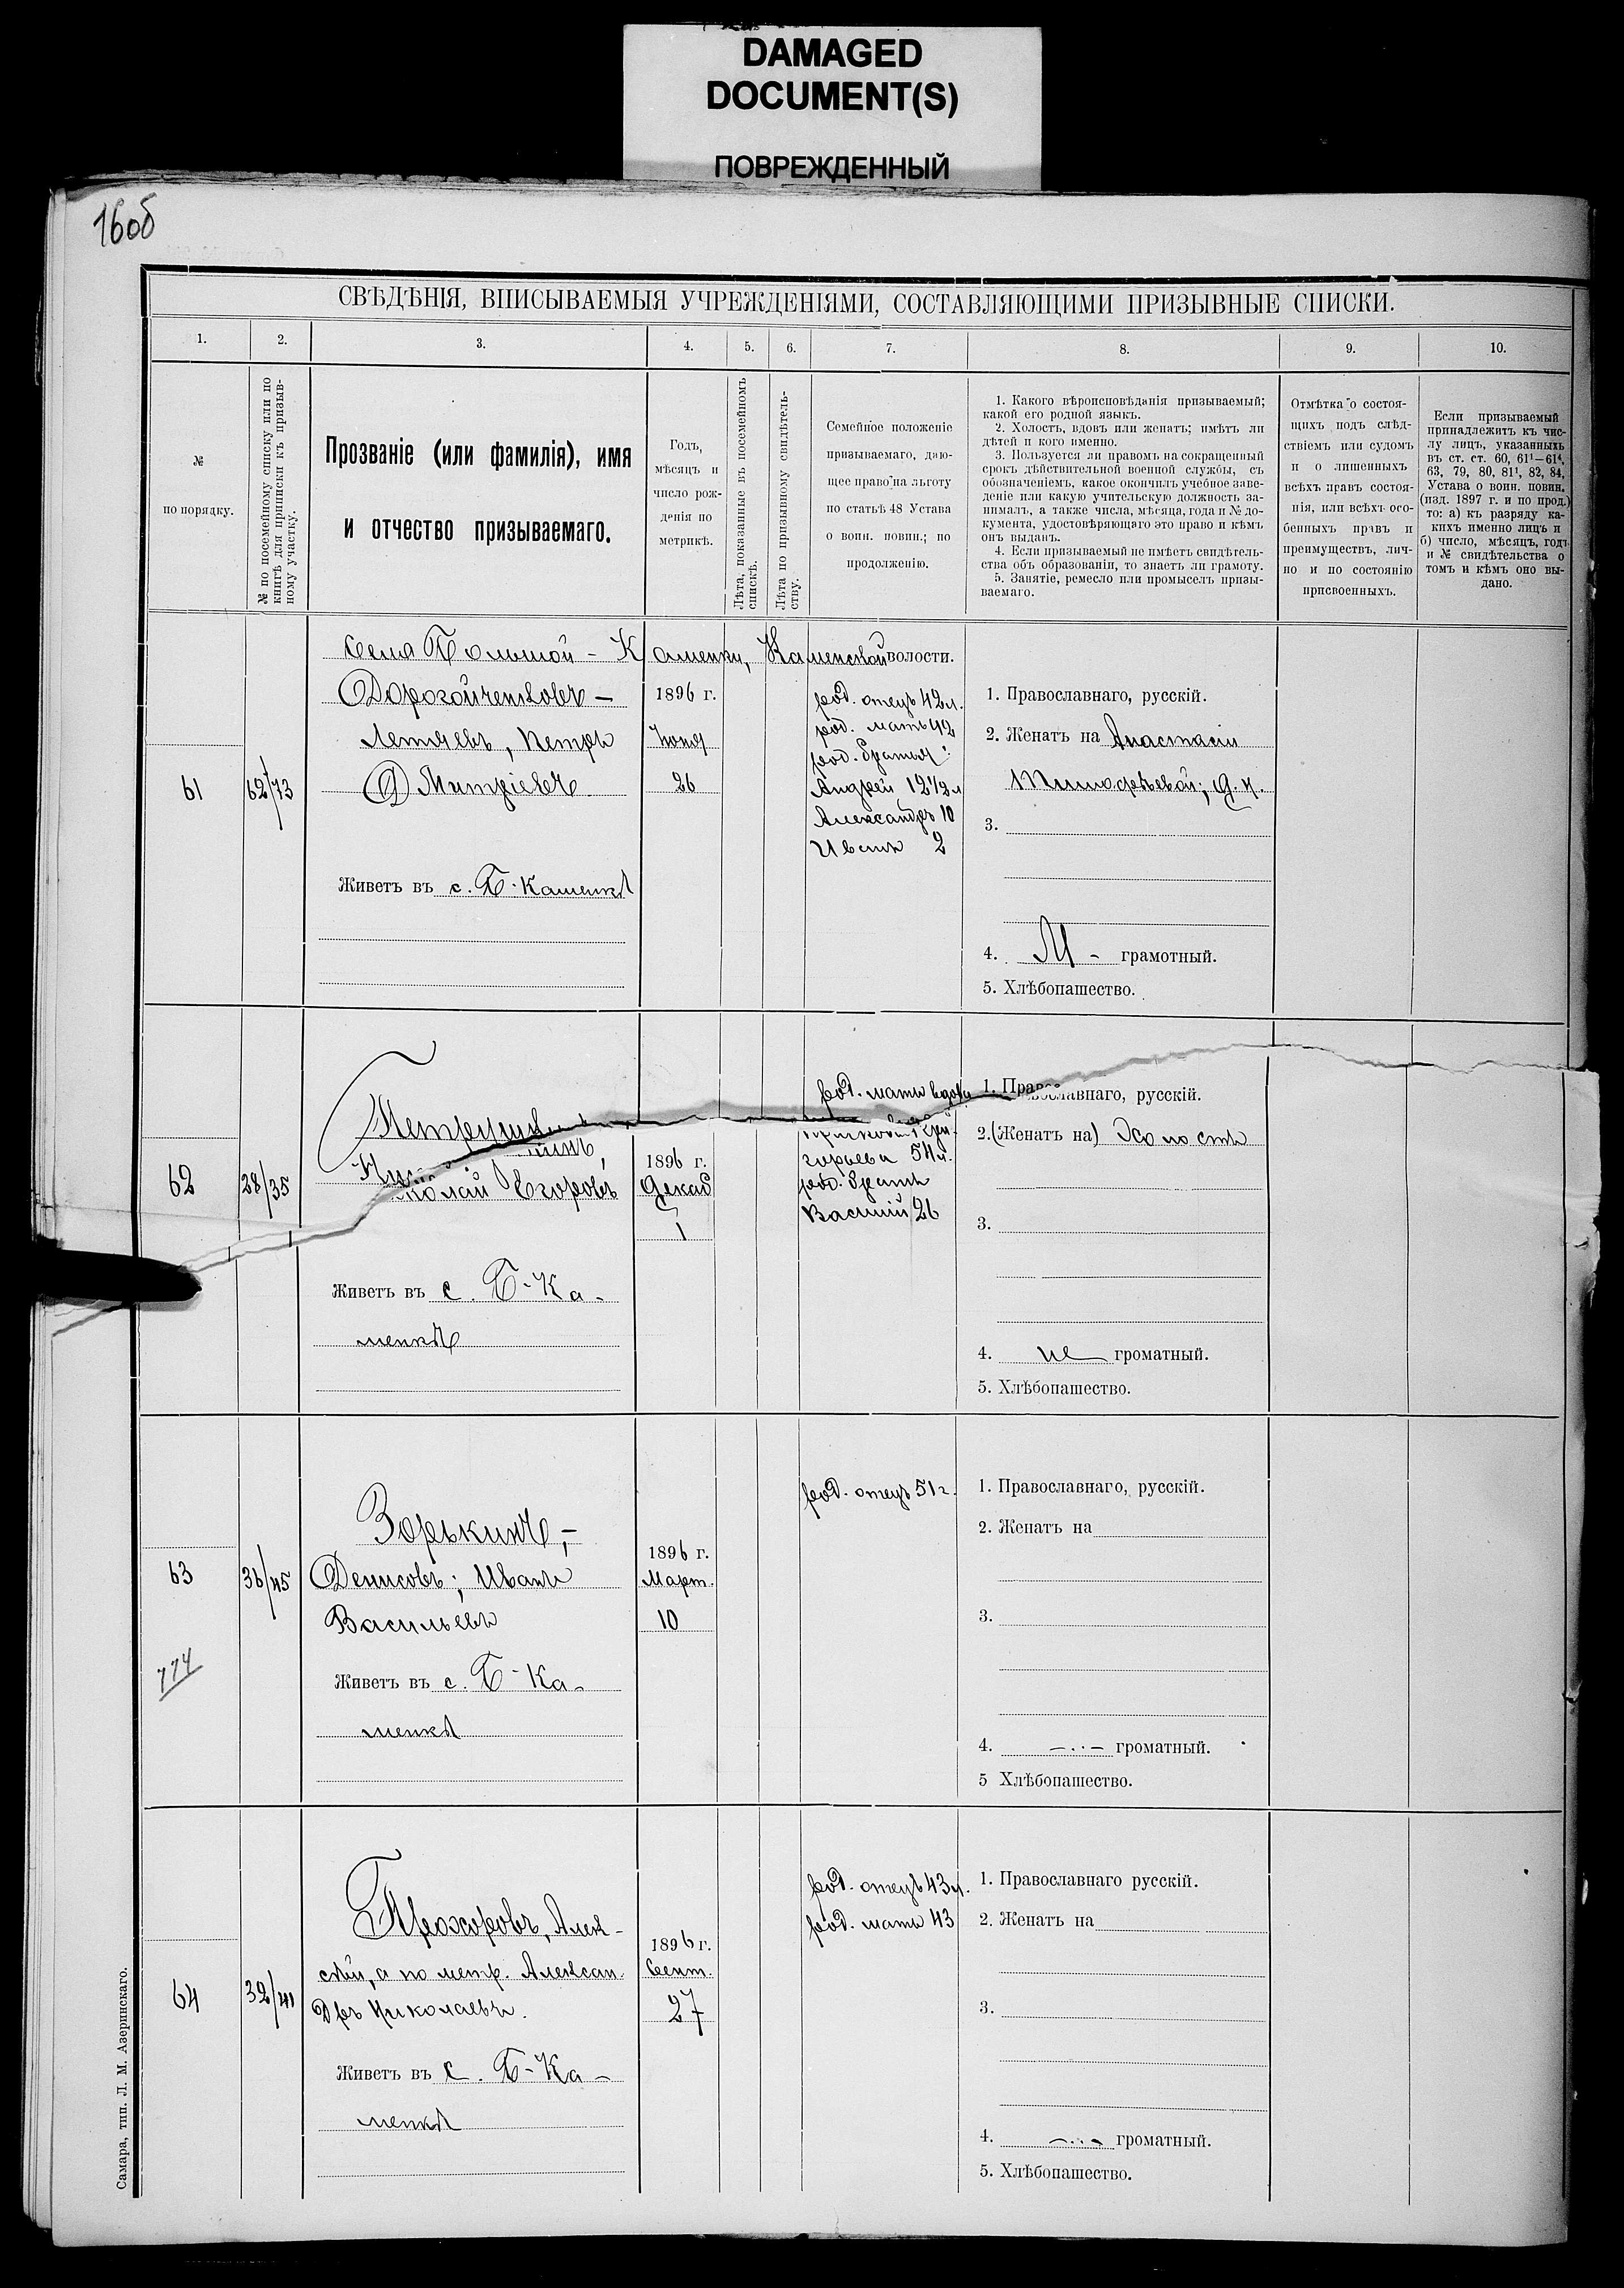 DAMAGED
DOCUMENT(S)
ПОВРЕЖДЕННЫЙ
16об
СВѢДѢНІЯ, ВПИСЫВАЕМЫЯ УЧРЕЖДЕНІЯМИ, СОСТАВЛЯЮЩИМИ ПРИЗЫВНЫЕ СПИСКИ.
1. 2. 3. 4. 5. 6. 7. 8. 9. 10.
№
по порядку.
№ по посемейному списку или по
книгѣ для приписки къ призыв-
ному участку.
Прозваніе (или фамилія), имя
и отчество призываемаго.
Годъ,
мѣсяцъ и
число рож-
денія по
метрикѣ.
Лѣта, показанные въ посемейномъ
спискѣ.
Лѣта по призывному свидѣтель-
ству.
Семейное положеніе
призываемаго, даю-
щее право на льготу
по статьѣ 48 Устава
о воин. повин.; по
продолженію.
1. Какого вѣроисповѣданія призываемый;
какой его родной языкъ.
2. Холостъ, вдовъ или женатъ; имѣтъ ли
дѣтей и кого именно.
3. Пользуется ли правомъ на сокращенный
срокъ дѣйствительной военной службы, съ
обозначеніемъ, какое окончилъ учебное заве-
деніе или какую учительскую должность за-
нималъ, а также числа, мѣсяца, года и № до-
кумента, удостовѣряющаго это право и кѣмъ
онъ выданъ.
4. Если призываемый не имѣетъ свидѣтель-
ства объ образованіи, то знаетъ ли грамоту.
5. Занятіе, ремесло или промыселъ призы-
ваемаго.
Отмѣтка о состоя-
щихъ подъ слѣд-
ствіемъ или судомъ
и о лишенныхъ
всѣхъ правъ состоя-
нія, или всѣхъ осо-
бенныхъ правъ и
преимуществъ, лич-
но и по состоянію
присвоенныхъ.
Если призываемый
принадлежитъ къ чис-
лу лицъ, указанныхъ
въ ст. ст. 60, 61¹—61⁴,
63, 79, 80, 81¹, 82, 84,
Устава о воин. повин.
(изд. 1897 г. и по прод.)
то: а) къ разряду ка-
кихъ именно лицъ и
б) число, мѣсяцъ, годъ
и № свидѣтельства о
томъ и кѣмъ оно вы-
дано.
Села Большой - Каменки, Каменской волости.
61
62/73
Дорогойченковъ —
Летяевъ, Петръ
Дмитріевъ
Живетъ въ с. Б. Каменкѣ
1896 г.
Іюня
26
род. отецъ 42 л.
род. мать 42
род. братья:
Андрей 12 1/2 л
Александръ 10
Иванъ 2
1. Православнаго, русскій.
2. Женатъ на Анастасіи
Тимофѣевой; д. н.
3.
4. М - грамотный.
5. Хлѣбопашество.
62
28/35
Николай Егоровъ
Живетъ въ с. Б-Ка-
менкѣ
1896 г.
Декаб
1
род. мать вдова
горьева 54 л.
род. братъ
Василій 26
1. Православнаго, русскій.
2. (Женатъ на) Холостъ
3.
4. не громатный.
5. Хлѣбопашество.
63
36/45
774
Зорькинъ, -
Денисовъ; Иванъ
Васильевъ
Живетъ въ с. Б-Ка-
менкѣ
1896 г.
Март.
10
род. отецъ 51 г.
1. Православнаго, русскій.
2. Женатъ на
3.
4. -..- громатный.
5 Хлѣбопашество.
64
32/41
Прохоровъ, Алек-
сѣй, а по метр. Алексан-
дръ Николаевъ.
Живетъ въ с. Б-Ка-
менкѣ
1896 г.
Сент.
27
род. отецъ 43 л.
род. мать 43
1. Православнаго русскій.
2. Женатъ на
3.
4. -..- громатный.
5. Хлѣбопашество.
Самара, тип. Л. М. Азеринскаго.